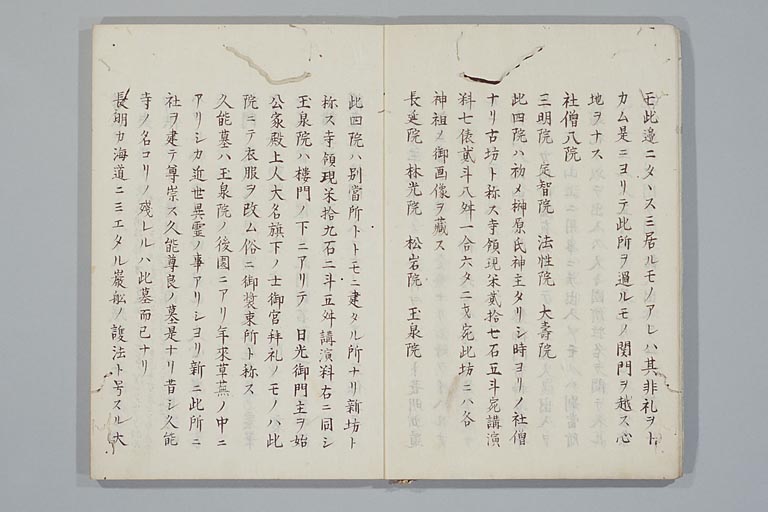 モ此邊ニタヽスミ居ルモノアレハ其非礼ヲト
カム是ニヨリテ此所ヲ過ルモノ関門ヲ越ス心
地ヲナス
社僧八院
三明院 定智院 法性院 大壽院
此四院ハ初メ榊原氏神主タリシ時ヨリノ社僧
ナリ古坊ト称ス寺領現米貳拾七石五斗宛講演
料七俵貳斗八舛一合六夕二才宛此坊ニハ各
神祖ノ御画像ヲ藏ス
長延院 林光院 松岩院 玉泉院
此四院ハ別當所トトモニ建タル所ナリ新坊ト
称ス寺領現米拾九石二斗五舛講演料右ニ同シ
玉泉院ハ楼門ノ下ニアリテ 日光御門主ヲ始
公家殿上人大名旗下ノ士御宮拜礼ノモノハ此
院ニテ衣服ヲ改ム俗ニ御裝束所ト称ス
久能墓ハ玉泉院ノ後園ニアリ年來草蕪ノ中ニ
アリシカ近世異霊ノ事アリシヨリ新ニ此所ニ
社ヲ建テ尊崇ス久能尊良ノ墓是ナリ昔シ久能
寺ノ名コリノ残レルハ此墓而已ナリ
長明カ海道ニミエタル巌舩ノ護法ト号スル大